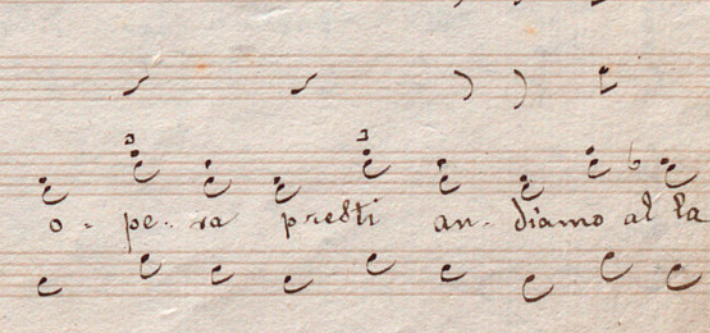 o - pe - ra presti an - diamo al la